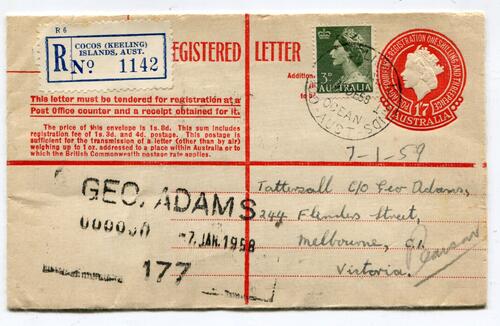 R 6
R No 1142
COCOS (KEELING)
ISLANDS, AUST.
REGISTERED LETTER
3D
AUSTRALIA
1'7
AUSTRALIA
This letter must be tendered for registration at a
Post Office counter and a receipt obtained for it.
The price of this envelope is 1s.8d. This sum includes
registration fee of 1s.3d. and 4d. postage. This postage is
sufficient for the transmission of a letter (other than by air)
weighing up to 1 oz. addressed to a place within Australia or to
which the British Commonwealth postage rate applies.
7-1-59
GEO. ADAMS
7. JAN. 1958
177
Tattersall C/o Geo Adams,
244 Flinders Street,
Melbourne, C.1.
Victoria.